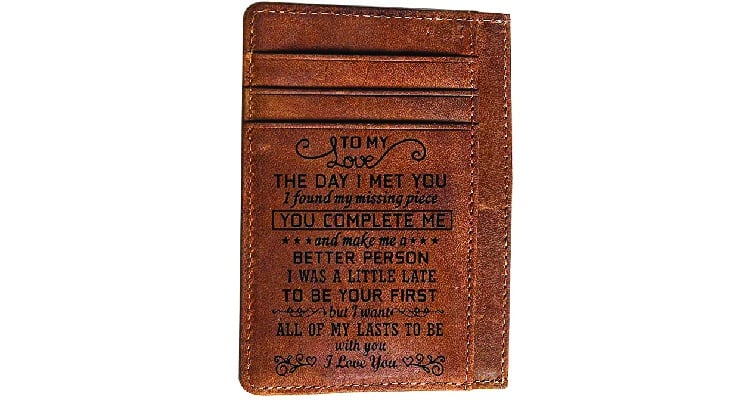 TO MY
Love
THE DAY I MET YOU
I found my missing piece
YOU COMPLETE ME
and make me a
BETTER PERSON
I WAS A LITTLE LATE
TO BE YOUR FIRST
but I want
ALL OF MY LASTS TO BE
with you
I Love You